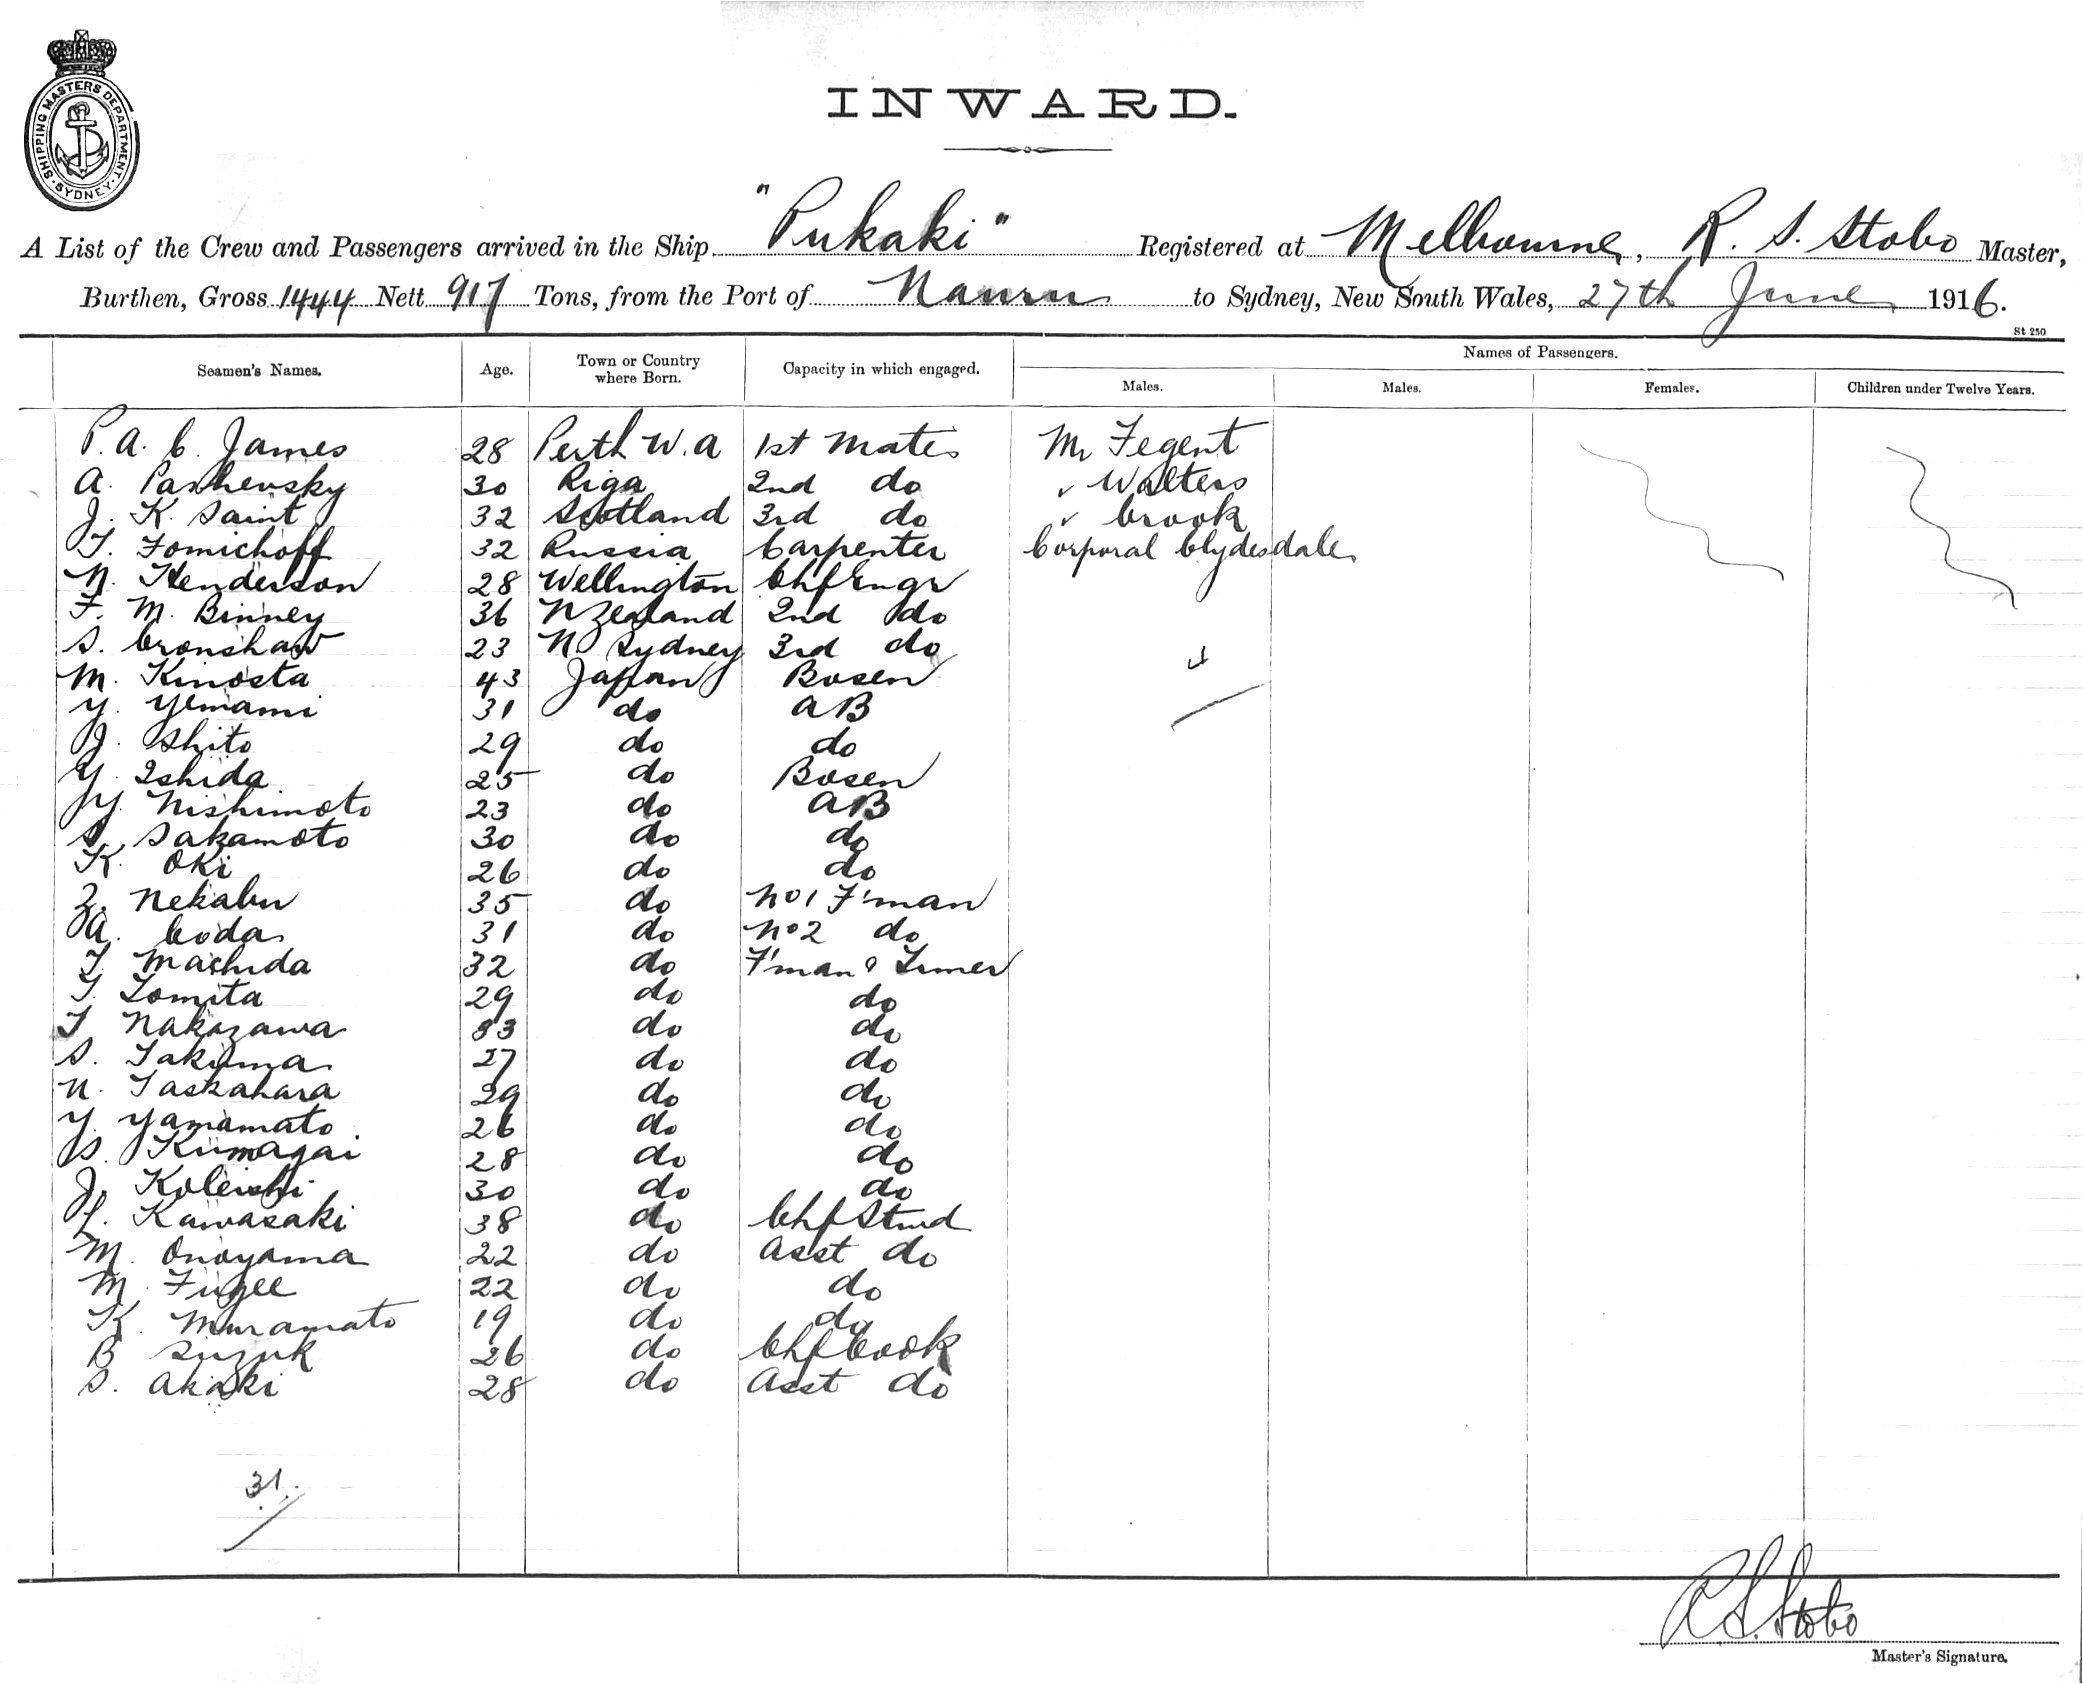 SHIPPING MASTERS DEPARTMENT. SYDNEY.
INWARD.
A List of the Crew and Passengers arrived in the Ship "Pukaki" Registered at Melbourne, R. S. Stobo Master,
Burthen, Gross 1444 Nett 917 Tons, from the Port of Nauru to Sydney, New South Wales, 27th June 1916.
St 250
Seamen's Names. Age. Town or Country where Born. Capacity in which engaged. Names of Passengers.
Males. Males. Females. Children under Twelve Years.
P. A. C. James 28 Perth W.A 1st Mate Mr Fegent
A. Pashevsky 30 Riga 2nd do " Walters
J. K. Saint 32 Scotland 3rd do " Crook
T. Fomichoff 32 Russia Carpenter Corporal Clydesdale
N. Henderson 28 Wellington Chf Engr
F. M. Binney 36 N Zealand 2nd do
S. Cronshaw 23 N Sydney 3rd do
M. Kinosta 43 Japan Bosen
Y. Yemami 31 do AB
J. Shito 29 do do
Y. Ishida 25 do Bosen
Y. Nishimoto 23 do AB
S. Sakamoto 30 do do
K. Oki 26 do do
Z. Nekabu 35 do No1 F'man
A. Coda 31 do No2 do
T. Machida 32 do F'man & Trmer
T. Tomita 29 do do
T Nakazawa 33 do do
S. Takuma 27 do do
N. Taskahara 29 do do
Y. Yamamato 26 do do
S. Kumagai 28 do do
J. Koleishi 30 do do
Kawasaki 38 do Chf Stwd
M. Onoyama 22 do Asst do
M. Fugee 22 do do
K. Muramato 19 do do
B Suzuk 26 do Chf Cook
S. Akaski 28 do Asst do
4
31.
R S. Stobo
Master's Signature.